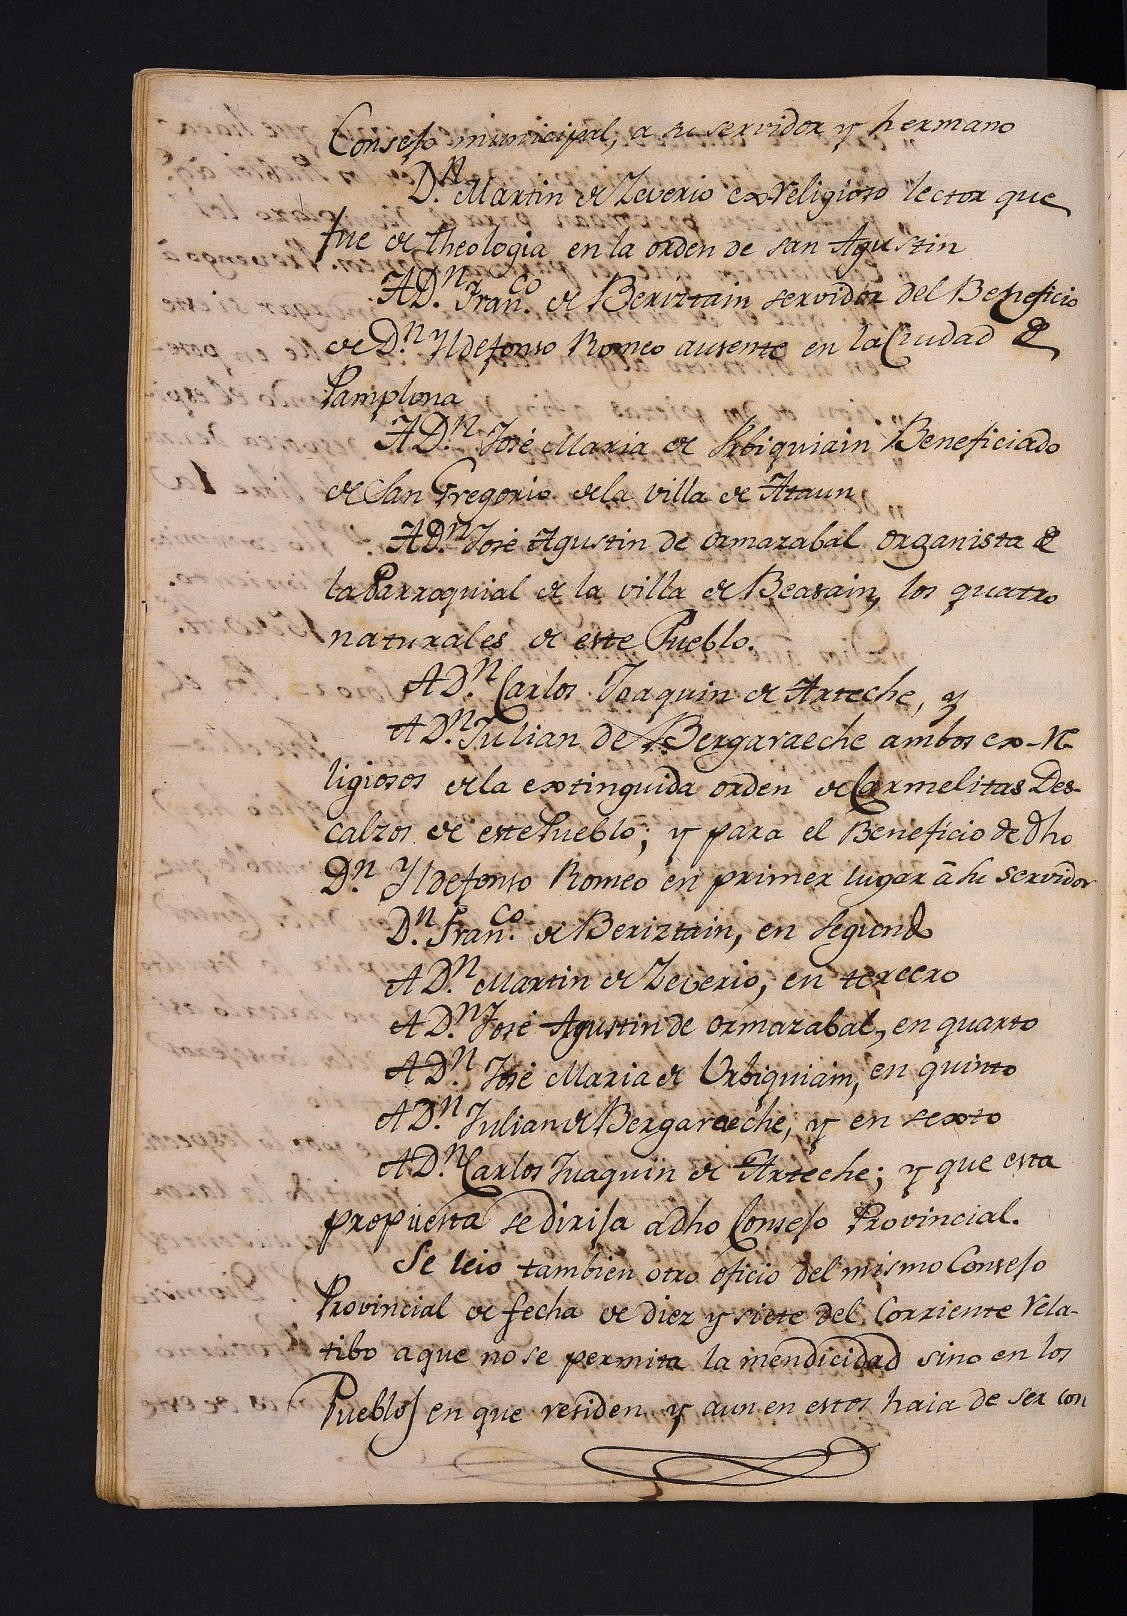 Consejo municipal, a su servidor y hermano
D.n Martin de Zeverio ex-religioso lector que
fue de theologia en la orden de san Agustin
A D.n Fran.co de Beriztain servidor del Beneficio
de D.n Yldefonso Romeo ausente en la Ciudad de
Pamplona
A D.n José Maria de Urbiquiain Beneficiado
de San Gregorio de la villa de Ataun
A D.n José Agustin de ormazabal organista de
la Parroquial de la villa de Beasain, los quatro
naturales de este Pueblo.
A D.n Carlos Joaquin de Arteche, y
A D.n Julian de Bergaraeche ambos ex-re
ligiosos de la extinguida orden de Carmelitas Des-
calzos de este Pueblo; y para el Beneficio de dho
D.n Yldefonso Romeo en primer lugar â su servidor
D.n Fran.co de Beriztain, en segundo
A D.n Martin de Zeverio, en tercero
A D.n José Agustin de ormazabal, en quarto
A D.n José Maria de Urbiquiain, en quinto
A D.n Julian de Bergaraeche, y en sexto
A D.n Carlos Juaquin de Arteche; y que esta
propuesta se dirija a dho Consejo Provincial.
Se leio tambien otro oficio del mismo Consejo
Provincial de fecha de diez y siete del Corriente rela-
tibo a que no se permita la mendicidad sino en los
Pueblos en que residen y aun en estos haia de ser con